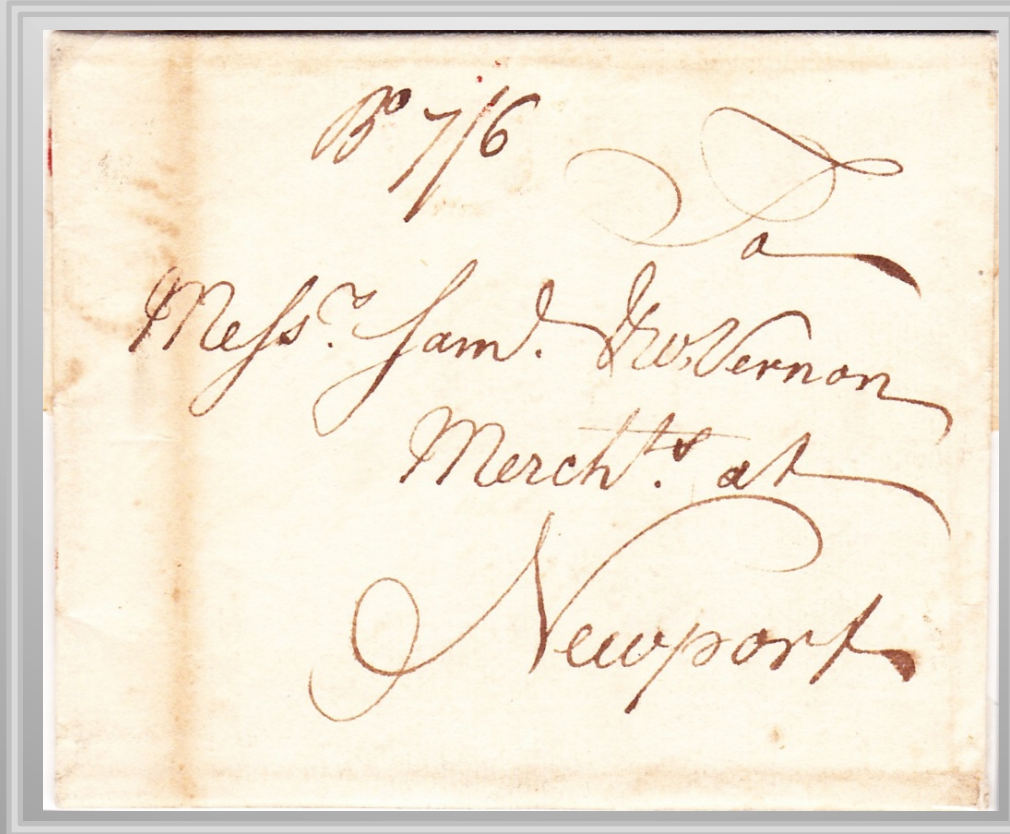 Bº 7/6
To
Messrs. Saml. & Wm Vernon
Merchts. at
Newport